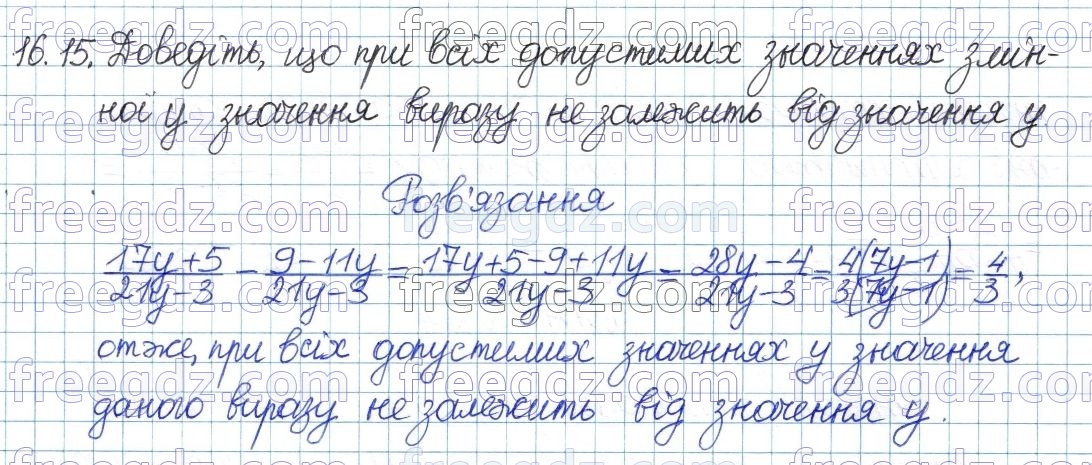 16.15. Доведіть, що при всіх допустимих значеннях змін-
ної y значення виразу не залежить від значення y
Розв'язання
17y+5/21y-3 - 9-11y/21y-3 = 17y+5-9+11y/21y-3 = 28y-4/21y-3 = 4(7y-1)/3(7y-1) = 4/3,
отже, при всіх допустимих значеннях y значення
даного виразу не залежить від значення y.